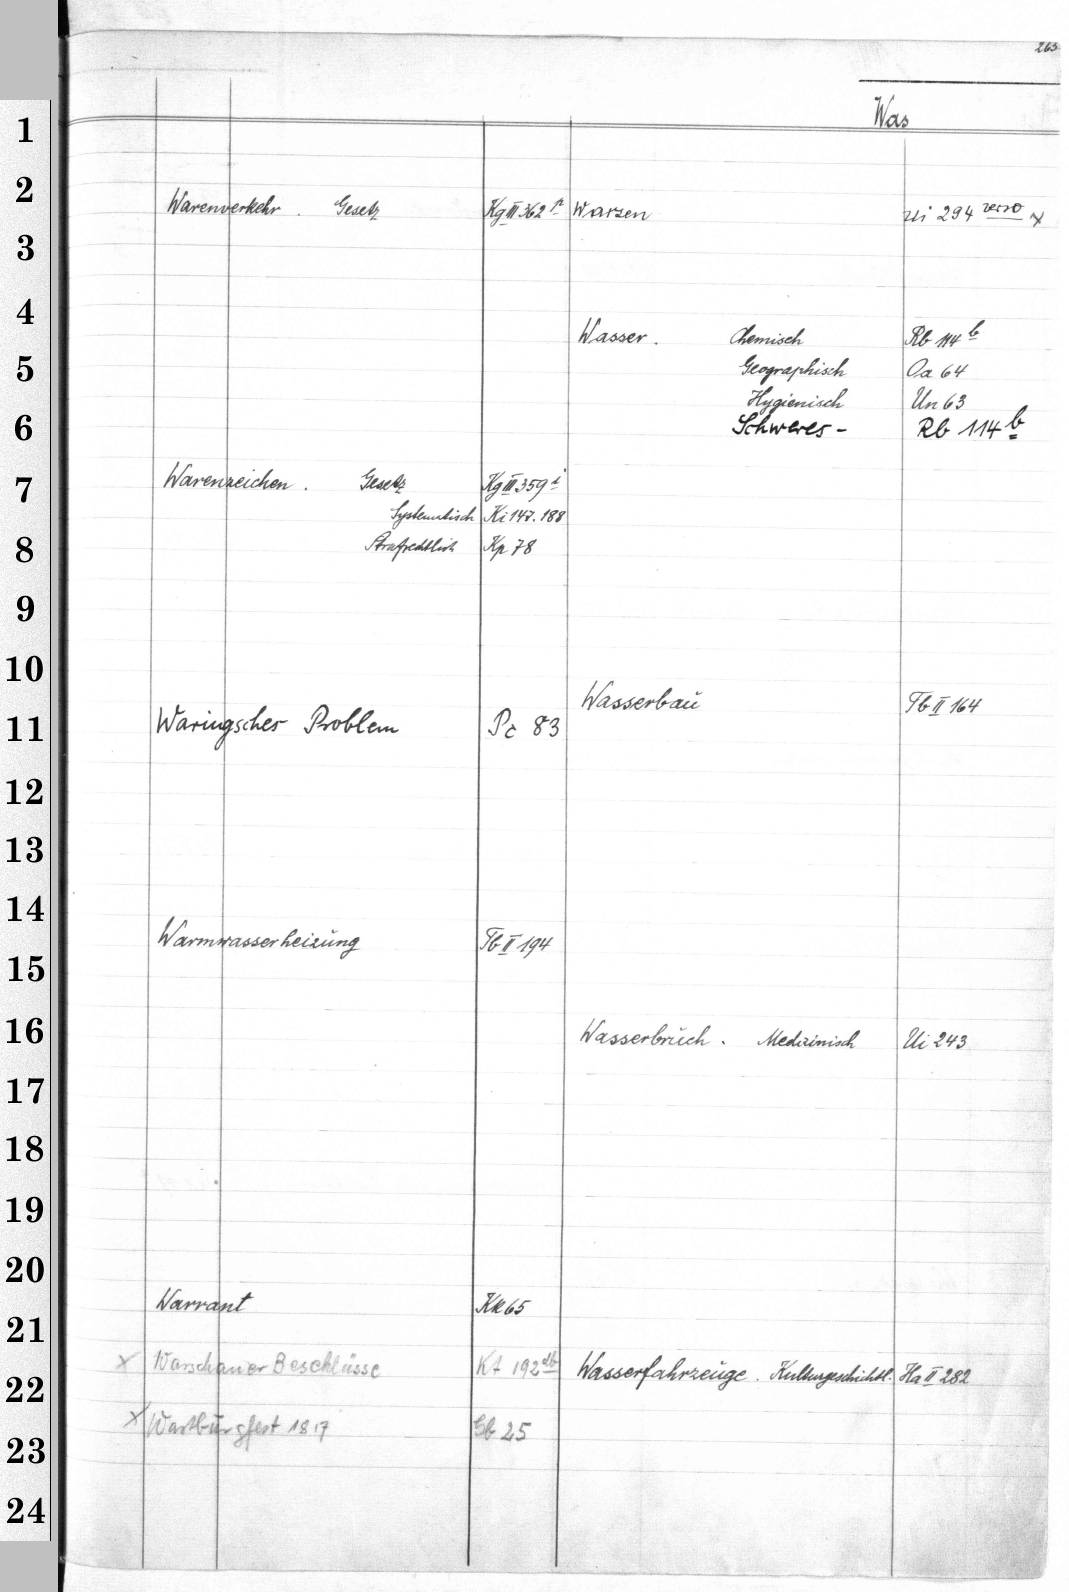 263
Was
Warenverkehr . Gesetz Kg III 362 n
Warenzeichen . Gesetz Kg III 359 i
Systematisch Ki 147. 188
Strafrechtlich Kp 78
Waringsches Problem Pc 83
Warmwasserheizung Tb II 194
Warrant Kk 65
x Warschauer Beschlüsse Kt 192 db
x Wartburgfest 1817 Gb 25
Warzen Ui 294 verso x
Wasser . Chemisch Rb 114 b
Geographisch Oa 64
Hygienisch Un 63
Schweres - Rb 114 b
Wasserbau Tb II 164
Wasserbruch . Medizinisch Ui 243
Wasserfahrzeuge . Kulturgeschichtl. Ha II 282
1
2
3
4
5
6
7
8
9
10
11
12
13
14
15
16
17
18
19
20
21
22
23
24